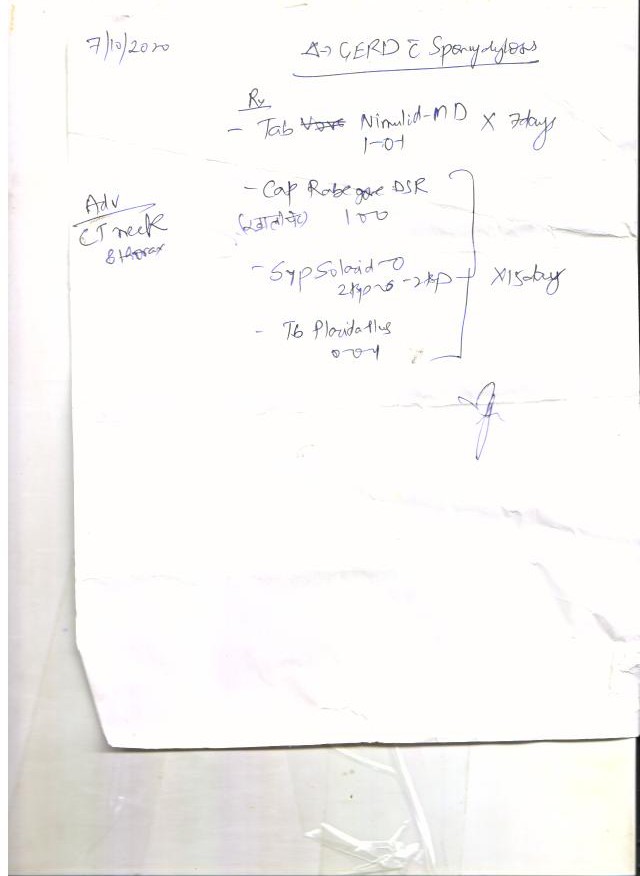 7/10/2020
Δ→ GERD c̄ Spondylosis
Rx
- Tab Nimulid-MD X 7days
1-0-1
Adv
CT neck
& thorax
- Cap Rabe DSR
(खाली पेट) 1 0 0
- Syp Solacid-O
2tsp-0-2tsp
X15days
- Tb Placida Plus
0-0-1